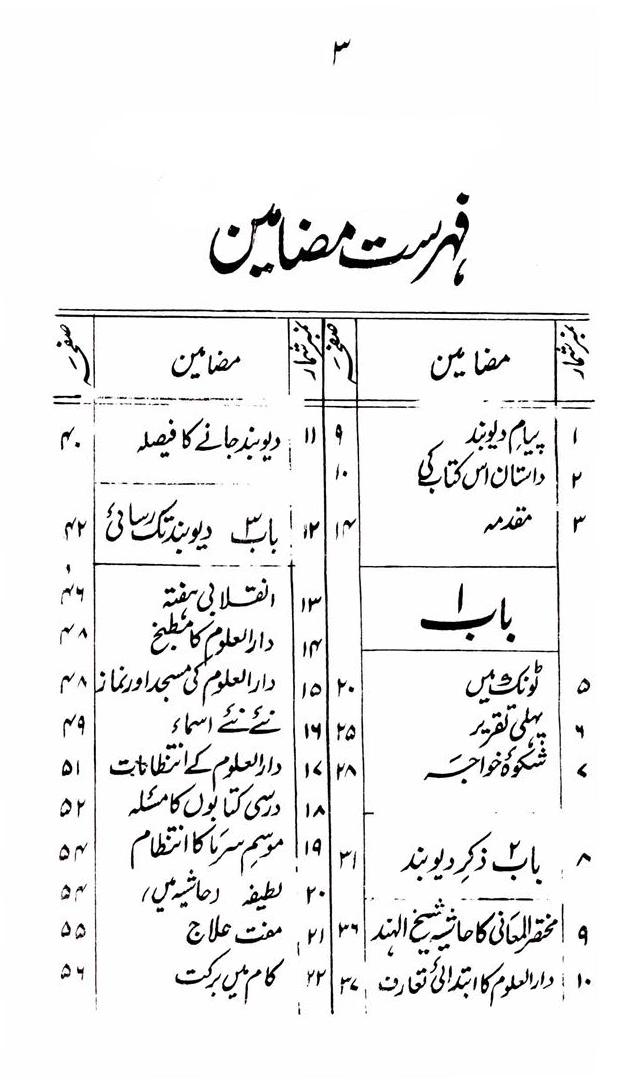 ۳
فہرست مضامین
نمبر شمار مضامین صفحہ
۱ پیامِ دیوبند ۹
۲ داستان اس کتاب کی ۱۰
۳ مقدمہ ۱۴
باب ۱
۵ ٹونک میں ۲۰
۶ پہلی تقریر ۲۵
۷ شکوۂ خواجہ ۲۸
۸ باب ۲ ذکرِ دیوبند ۳۱
۹ مختصر المعانی کا حاشیہ شیخ الہند ۳۶
۱۰ دارالعلوم کا ابتدائی تعارف ۳۷
نمبر شمار مضامین صفحہ
۱۱ دیوبند جانے کا فیصلہ ۴۰
۱۲ باب ۳ دیوبند تک رسائی ۴۲
۱۳ انقلابی ہفتہ ۴۶
۱۴ دارالعلوم کا مطبخ ۴۸
۱۵ دارالعلوم کی مسجد اور نماز ۴۸
۱۶ نئے نئے اسماء ۴۹
۱۷ دارالعلوم کے انتظامات ۵۱
۱۸ درسی کتابوں کا مسئلہ ۵۲
۱۹ موسمِ سرما کا انتظام ۵۴
۲۰ لطیفہ (حاشیہ میں) ۵۴
۲۱ مفت علاج ۵۵
۲۲ کام میں برکت ۵۶